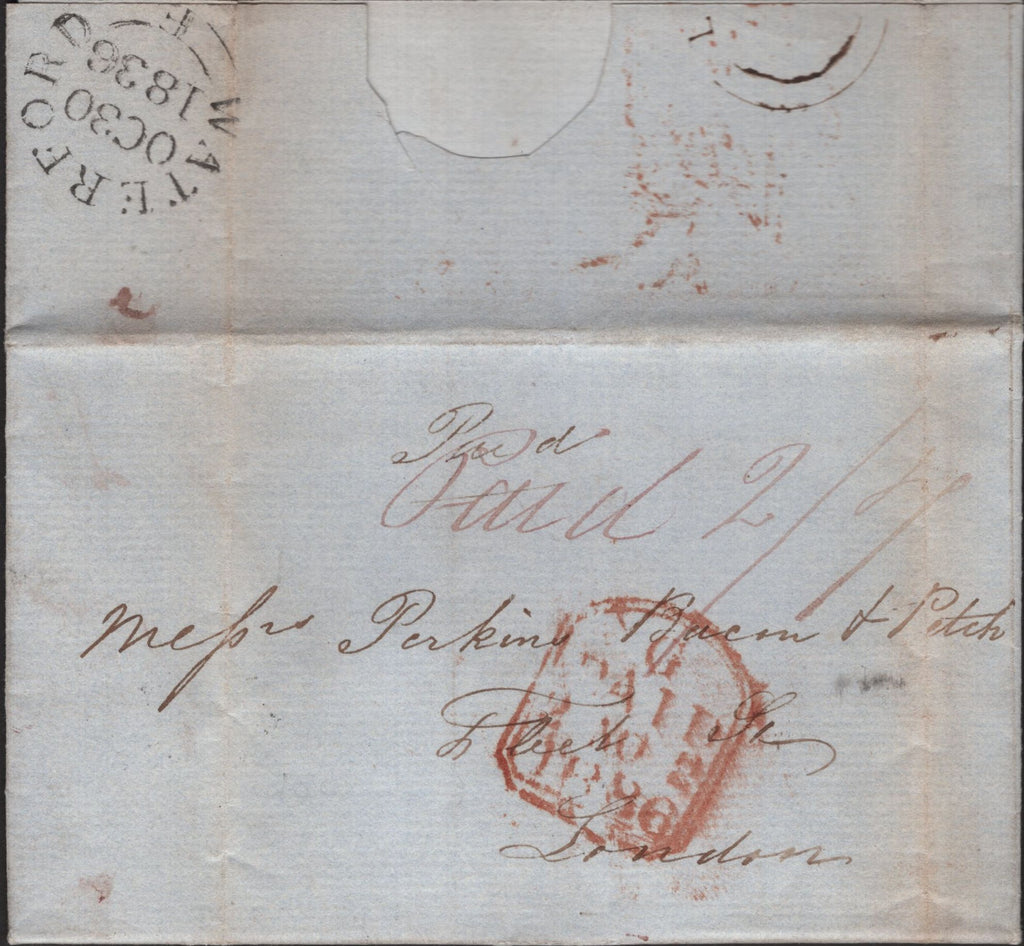 WATERFORD
OC30
1836
Paid
Paid 2/
Messrs Perkins Bacon & Petch
Fleet St
London
PAID
1836